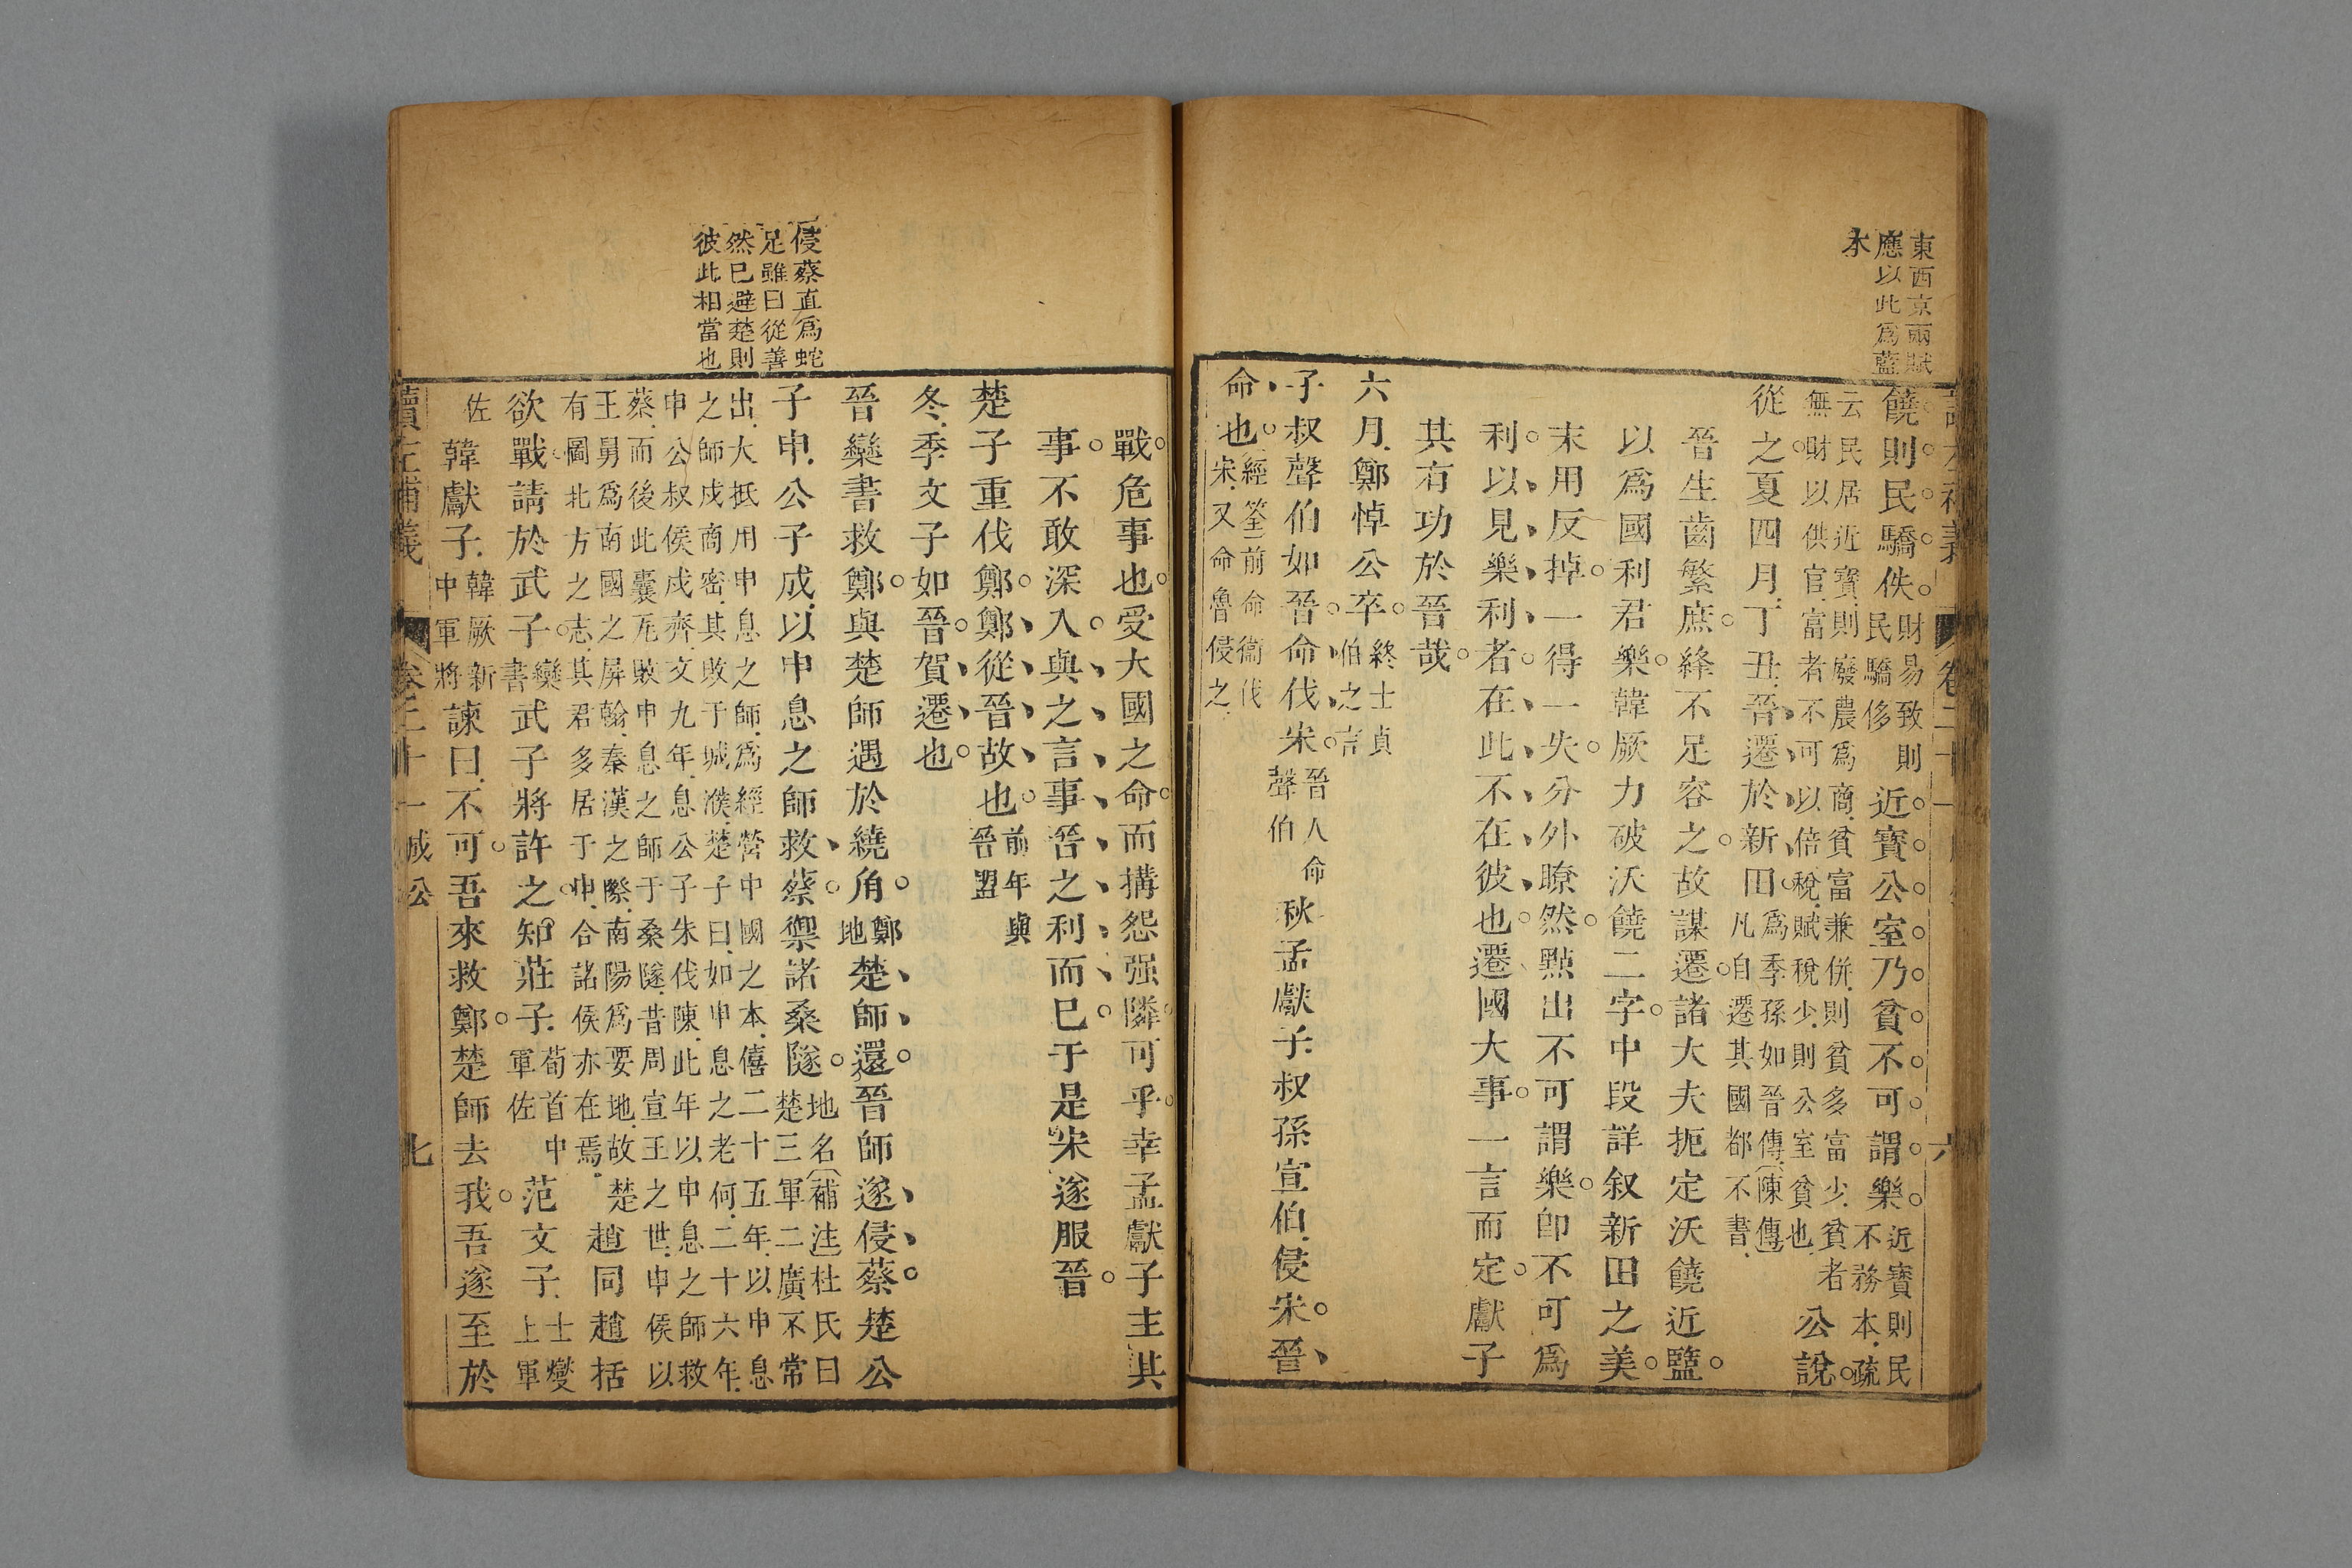 東西京兩賦
應以此爲藍
本
饒則民驕佚財易致則民驕侈近寶公室乃貧不可謂樂近寶則民不務本疏
云民居近寶則廢農爲商貧富兼併則貧多富少貧者
無財以供官富者不可以倍稅賦稅少則公室貧也公說
從之夏四月丁丑晉遷於新田爲季孫如晉傳陳傳凡自遷其國都不書
晉生齒繁庶絳不足容之故謀遷諸大夫扼定沃饒近盬
以爲國利君樂韓厥力破沃饒二字中段詳叙新田之美
末用反掉一得一失分外瞭然點出不可謂樂卽不可爲
利以見樂利者在此不在彼也遷國大事一言而定獻子
其有功於晉哉
六月鄭悼公卒終士貞伯之言
子叔聲伯如晉命伐宋晉人命聲伯秋孟獻子叔孫宣伯侵宋晉
命也經筌前命衞伐宋又命魯侵之
卷二十一
六
侵蔡直爲蛇
足雖曰從善
然已避楚則
彼此相當也
戰危事也受大國之命而搆怨强隣可乎幸孟獻子主其
事不敢深入與之言事晉之利而已于是宋遂服晉
楚子重伐鄭鄭從晉故也前年與晉盟
冬季文子如晉賀遷也
晉欒書救鄭與楚師遇於繞角鄭地楚師還晉師遂侵蔡楚公
子申公子成以申息之師救蔡禦諸桑隧地名補注杜氏曰楚三軍二廣不常
出大抵用申息之師爲經營中國之本僖二十五年以申息
之師戍商密其敗于城濮楚子曰如申息之老何二十六年
申公叔侯戍齊文九年息公子朱伐陳此年以申息之師救
蔡而後此囊瓦敗申息之師于桑隧昔周宣王之世申侯以
王舅爲南國之屏翰秦漢之際南陽爲要地故楚
有圖北方之志其君多居于申合諸侯亦在焉趙同趙括
欲戰請於武子欒書武子將許之知莊子荀首中軍佐范文子士燮上軍
佐韓獻子韓厥新中軍將諫曰不可吾來救鄭楚師去我吾遂至於
讀左補義 卷二十一 成公 七